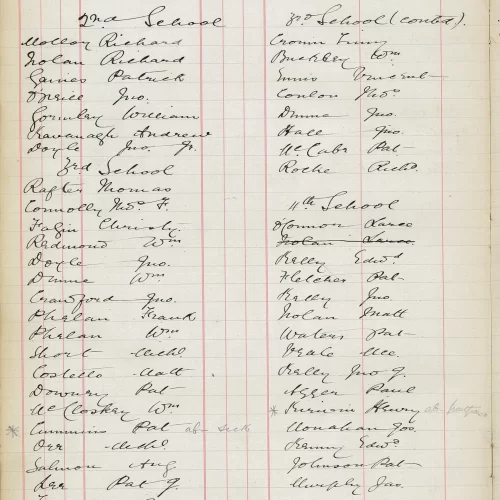 2nd School
Molloy Richard
Nolan Richard
Gaines Patrick
O'Neill Jno.
Gormley William
Kavanagh Andrew
Doyle Jno. Jr.
3rd School
Rafter Thomas
Connolly Thos. F.
Fagin Christy.
Redmond Wm
Doyle Jno.
Dunne Wm
Crawford Jno.
Phelan Frank
Phelan Wm
Short Michl.
Costello Matt
Downey Pat
McCloskey Wm
* Cummins Pat ab sick
Orr Michl.
Salmon Aug.
Lee Pat J.
3rd School (contd).
Cronin Finny
Buckley Wm
Ennis Vincent
Conlon Thos.
Dunne Jno.
Hall Jno.
McCabe Pat
Roche Richd.
4th School
O'Connor Laree
Nolan
Kelly Edwd
Fletcher Pat
Kelly Jno
Nolan Matt
Waters Pat
Neale
Kelly Jno J.
Egger Paul
* Kirwin Henry ab
Monahan Jos.
Kenny Edwd
Johnson Pat
Murphy Jas.